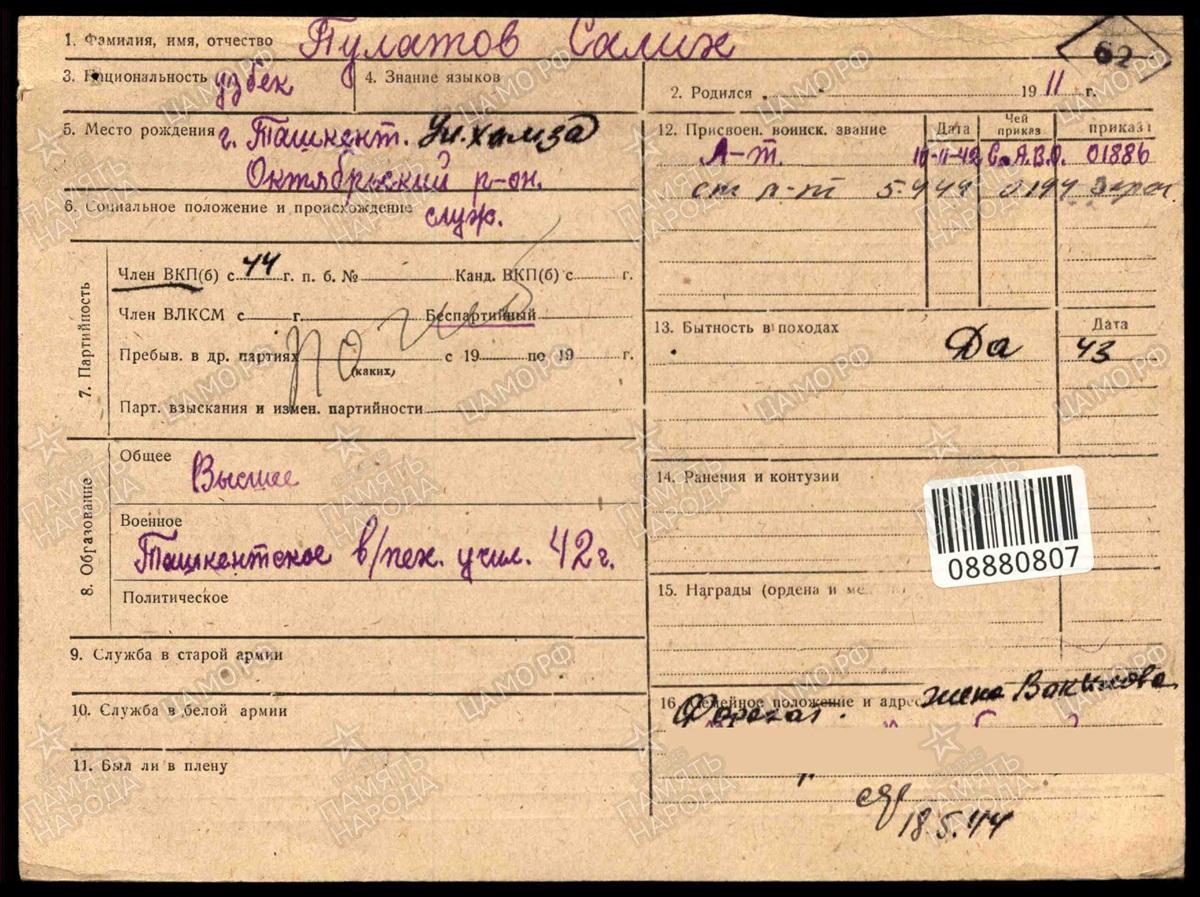 62
1. Фамилия, имя, отчество Пулатов Салих
3. Национальность узбек 4. Знание языков
2. Родился 1911 г.
5. Место рождения г. Ташкент. Ул. Хамза
Октябрьский р-он.
6. Социальное положение и происхождение служ.
7. Партийность
Член ВКП(б) с 44 г. п. б. № Канд. ВКП(б) с г.
Член ВЛКСМ с г. Беспартийный
Пребыв. в др. партиях с 19 по 19 г.
(каких)
Парт. взыскания и измен. партийности
погиб
8. Образование
Общее
Высшее
Военное
Ташкентское в/пех. учил. 42 г.
Политическое
9. Служба в старой армии
10. Служба в белой армии
11. Был ли в плену
12. Присвоен. воинск. звание Дата Чей приказ приказ
Л-т. 10-11-42 С.А.В.О. 01886
ст л-т 5.4 44 0194
13. Бытность в походах Дата
Да 43
14. Ранения и контузии
08880807
15. Награды (ордена и ме
16. Семейное положение и адрес жена Вакилова
18.5.44
ЦАМО.РФ
ПАМЯТЬ НАРОДА